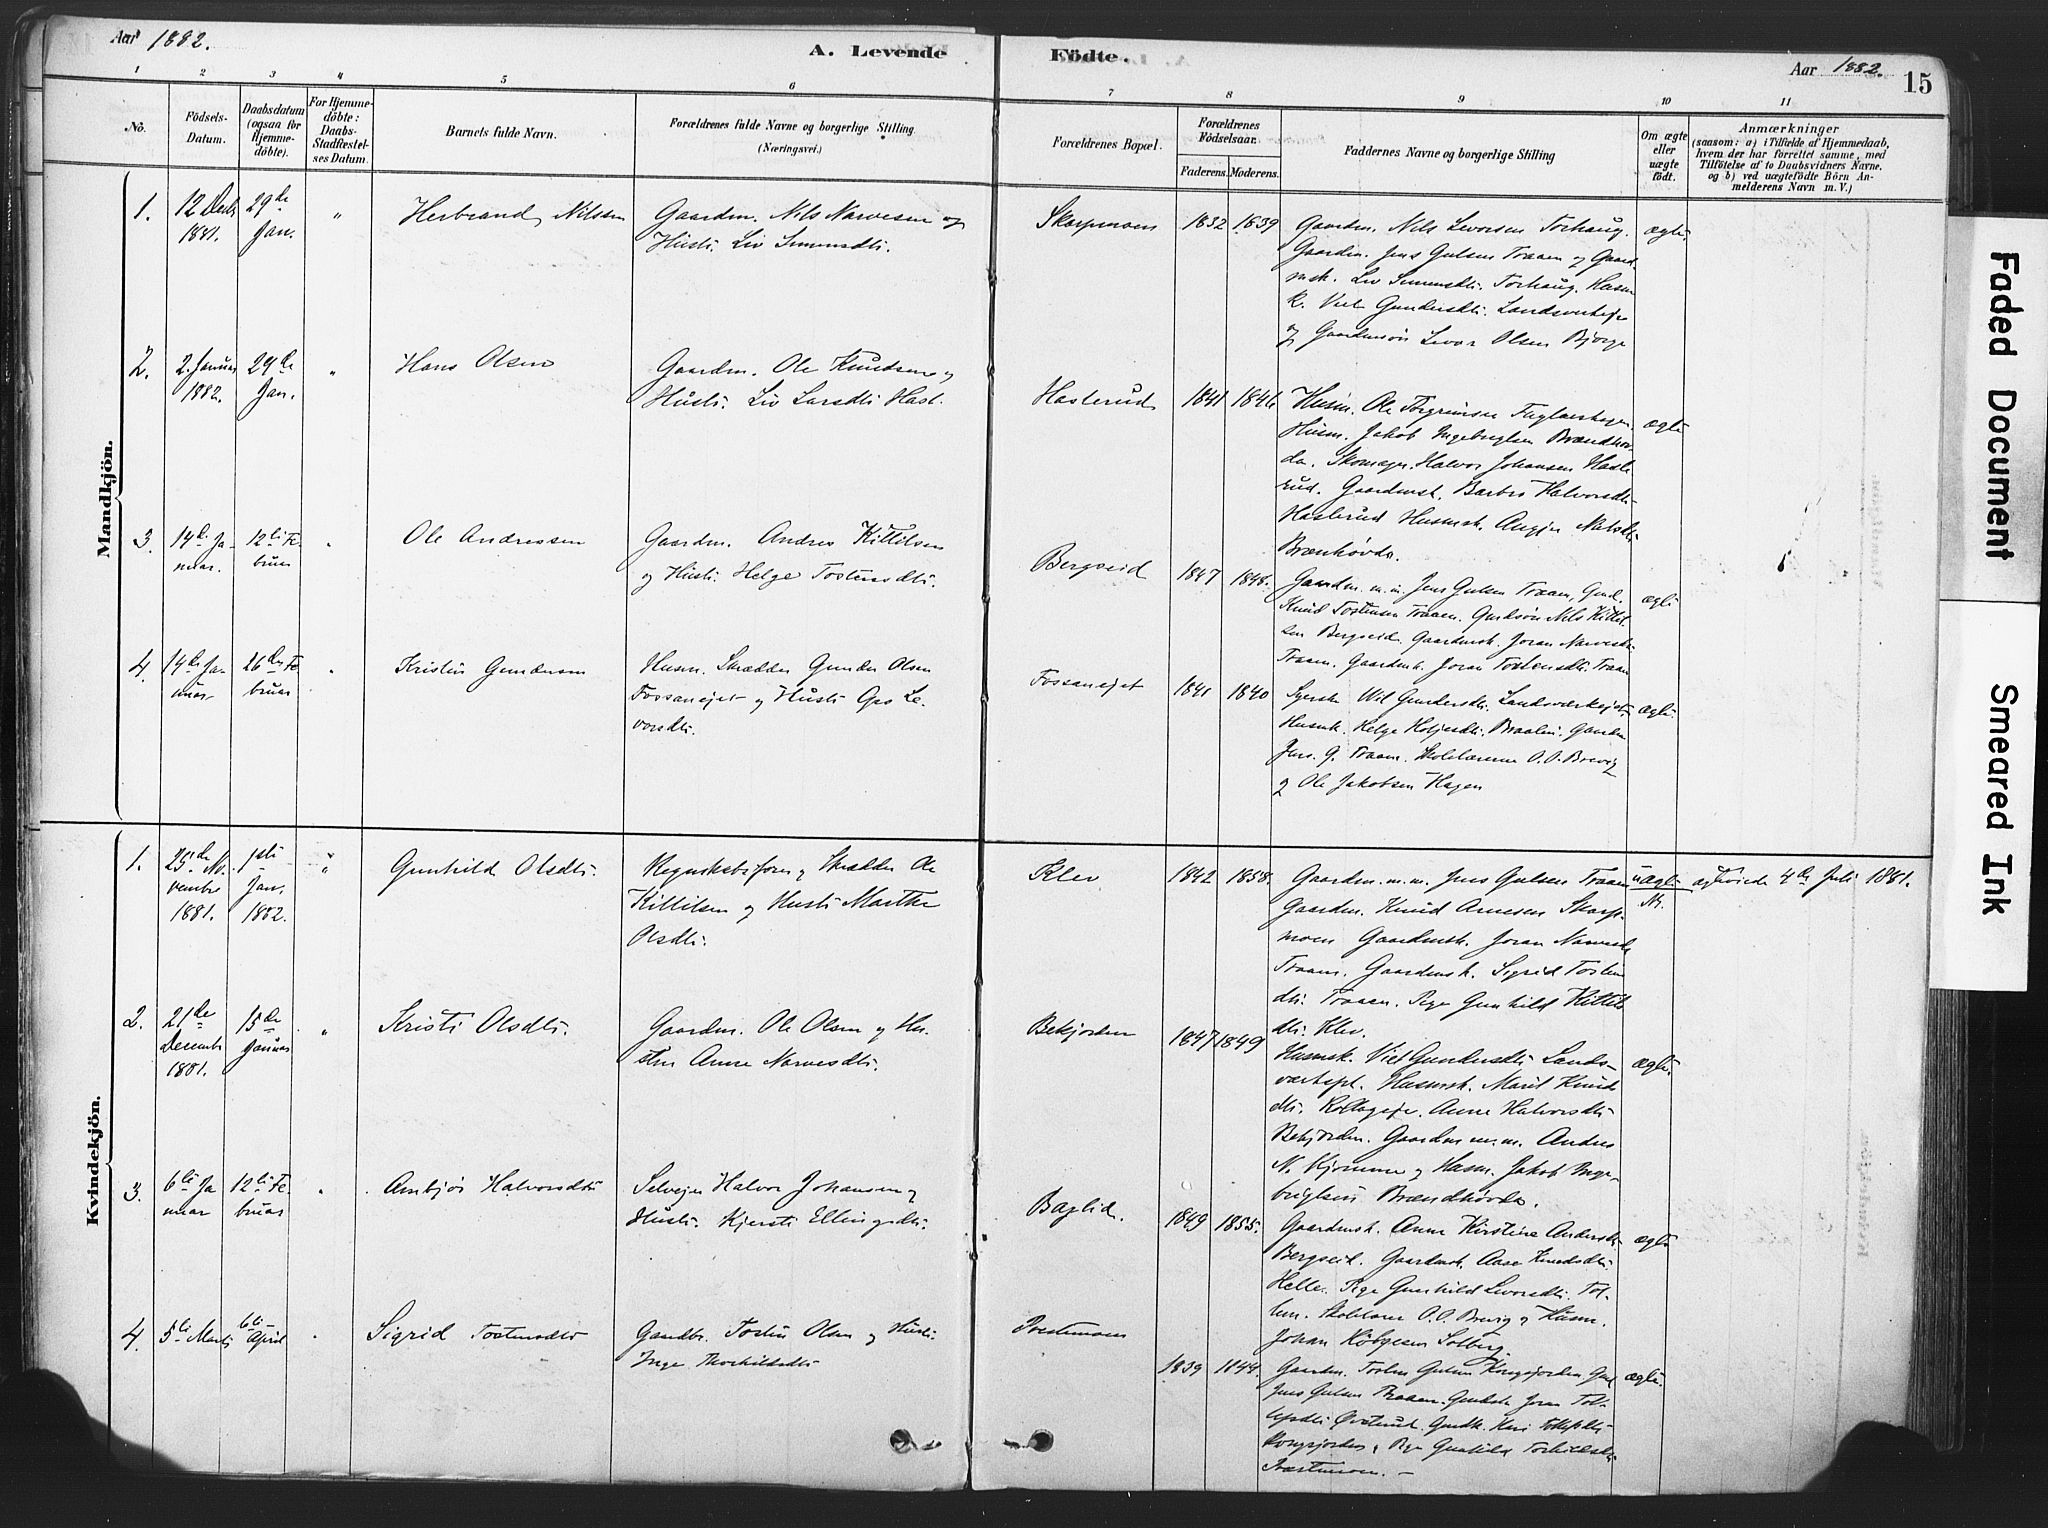 Aar 1882.
A. Levende Födte.
Aar 1882.
15
1 2 3 4 5 6 7 8 9 10 11
No.
Födsels-Datum.
Daabsdatum (ogsaa for Hjemmedöbte).
For Hjemmedöbte: Daabs-Stadfæstelses Datum.
Barnets fulde Navn.
Forældrenes fulde Navne og borgerlige Stilling (Næringsvei.)
Forældrenes Bopæl.
Forældrenes Födselsaar.
Faderens. Moderens.
Faddernes Navne og borgerlige Stilling
Om ægte eller uægte födt.
Anmærkninger
(saasom: a) i Tilfælde af Hjemmedaab,
hvem der har forrettet samme, med
Tilföielse af to Daabsvidners Navne.
og b) ved uægtefödte Börn An-
melderens Navn m. V.)
Mandkjön.
1. 12 Decbr 1881. 29de Jan. " Herbrand Nilssen
Gaardm. Nils Narvesen og
Hustr. Liv Simensdtr.
Skarpmoen 1832 1839
Gaardm. Nils Levorsen Torhaug.
Gaardm. Jens Gulsen Traaen og Gaard-
msk. Liv Simensdtr. Torhaug. Husm
k. Viel Gundersdtr. Landsverkeje
og Gaardmsön Levor Olsen Bjørge
ægte.
2. 2. Januar 1882. 29de Jan. " Hans Olsen
Gaardm. Ole Knudsen og
Hustr. Liv Larsdtr Hast.
Hasterud 1841 1846
Husm. Ole Torgrimsen Fuglerhagen.
Husm. Jakob Ingebrigtsen Brændhov-
da. Skomager. Halvor Johansen Hasle
rud. Gaardmsk. Barbro Halvorsdtr.
Hasterud Husmsk. Angjer Nilsdtr
Brænhövda.
ægte
3. 14de Januar. 12te Februar " Ole Andressen
Gaardm. Andres Kittilsen
og Hustr. Helge Tostensdtr.
Bergseid 1847 1848.
Gaardm. m.m. Jens Gulsen Traaen, Gmd.
Knud Tostensen Traaen. Gmdsön Nils Kittil-
sen Bergseid. Gaardmsk. Joran Narvesdtr
Traaen. Gaardmk. Joran Tostensdtr. Traaen
ægte
4. 14de Januar 26de Februar " Kristen Gundersen
Husm. Skrædder Gunder Olsen
Fossanejet og Hustr. Gro Le-
vorsdtr.
Fossanejet 1841 1840
Syerske Viel Gundersdtr. Landsværkejet
Husmk. Helge Kolsjesdtr. Braalin. Gaardm
Jens. G. Traaen. Skolelærerne O. O. Brevig
og Ole Jakobsen Hagen
ægte.
Kvindekjön.
1. 25de November 1881. 1ste Jan. 1882. " Gunhild Olsdtr.
Regnskabsfører og Skrædder Ole
Kittilsen og Hustr Marthe
Olsdtr.
Klev 1842 1858.
Gaardm. m.m. Jens Gulsen Traaen
Gaardm. Knud Arnesen Skarp-
moen Gaardmsk. Joran Narvesdtr
Traaen. Gaardmsk. Sigrid Tosten
dtr. Traaen. Pige Gunhild Kittils
dtr. Klev.
uægte
Nr.
ægteviede 4de Juli 1881.
2. 21de December 1881. 15de Januar " Kristi Olsdtr.
Gaardm. Ole Olsen og Hu-
stru Anne Narvesdtr.
Bekjorden 1847 1849
Husmsk. Viel Gundersdtr Lands-
værkejet. Husmsk. Marit Knuds
dtr. Kollageje. Anne Halvorsdtr
Bekjorden. Gaardm m.m. Andres
N. Kjomme og Husm. Jakob Inge-
brigtsen Brændhövda.
ægte.
3. 6te Januar 12te Februar " Ambjör Halvorsdtr
Selvejer Halvor Johansen og
Hustr. Kjersti Ellingsdtr.
Baglid. 1849 1855.
Gaardmsk. Anne Kirstine Andersdtr
Bergseid. Gaardmsk. Aase Knudsdtr.
Helle. Pige Gunhild Levorsdtr. Tof-
ten. Skolelærer O. O. Brevig og Husm.
Johan Kobgesen Solberg.
ægte
4. 5te Marts 6te April " Sigrid Tostensdtr
Gaardbr. Tosten Olsen og Hustr.
Inge Thorkildsdtr
Præstemoen 1839 1844.
Gaardm. Tosten Gulsen Kongsjorden. Gmd
Jens Gulsen Traaen. Gmdsk. Joran Tol-
lefsdtr Øvsterud. Gmdk. Kari Tollefsdtr
Kongsjorden, Pige Gunhild Torkildsdtr
Præstemoen. –
ægte.
Faded Document
Smeared Ink